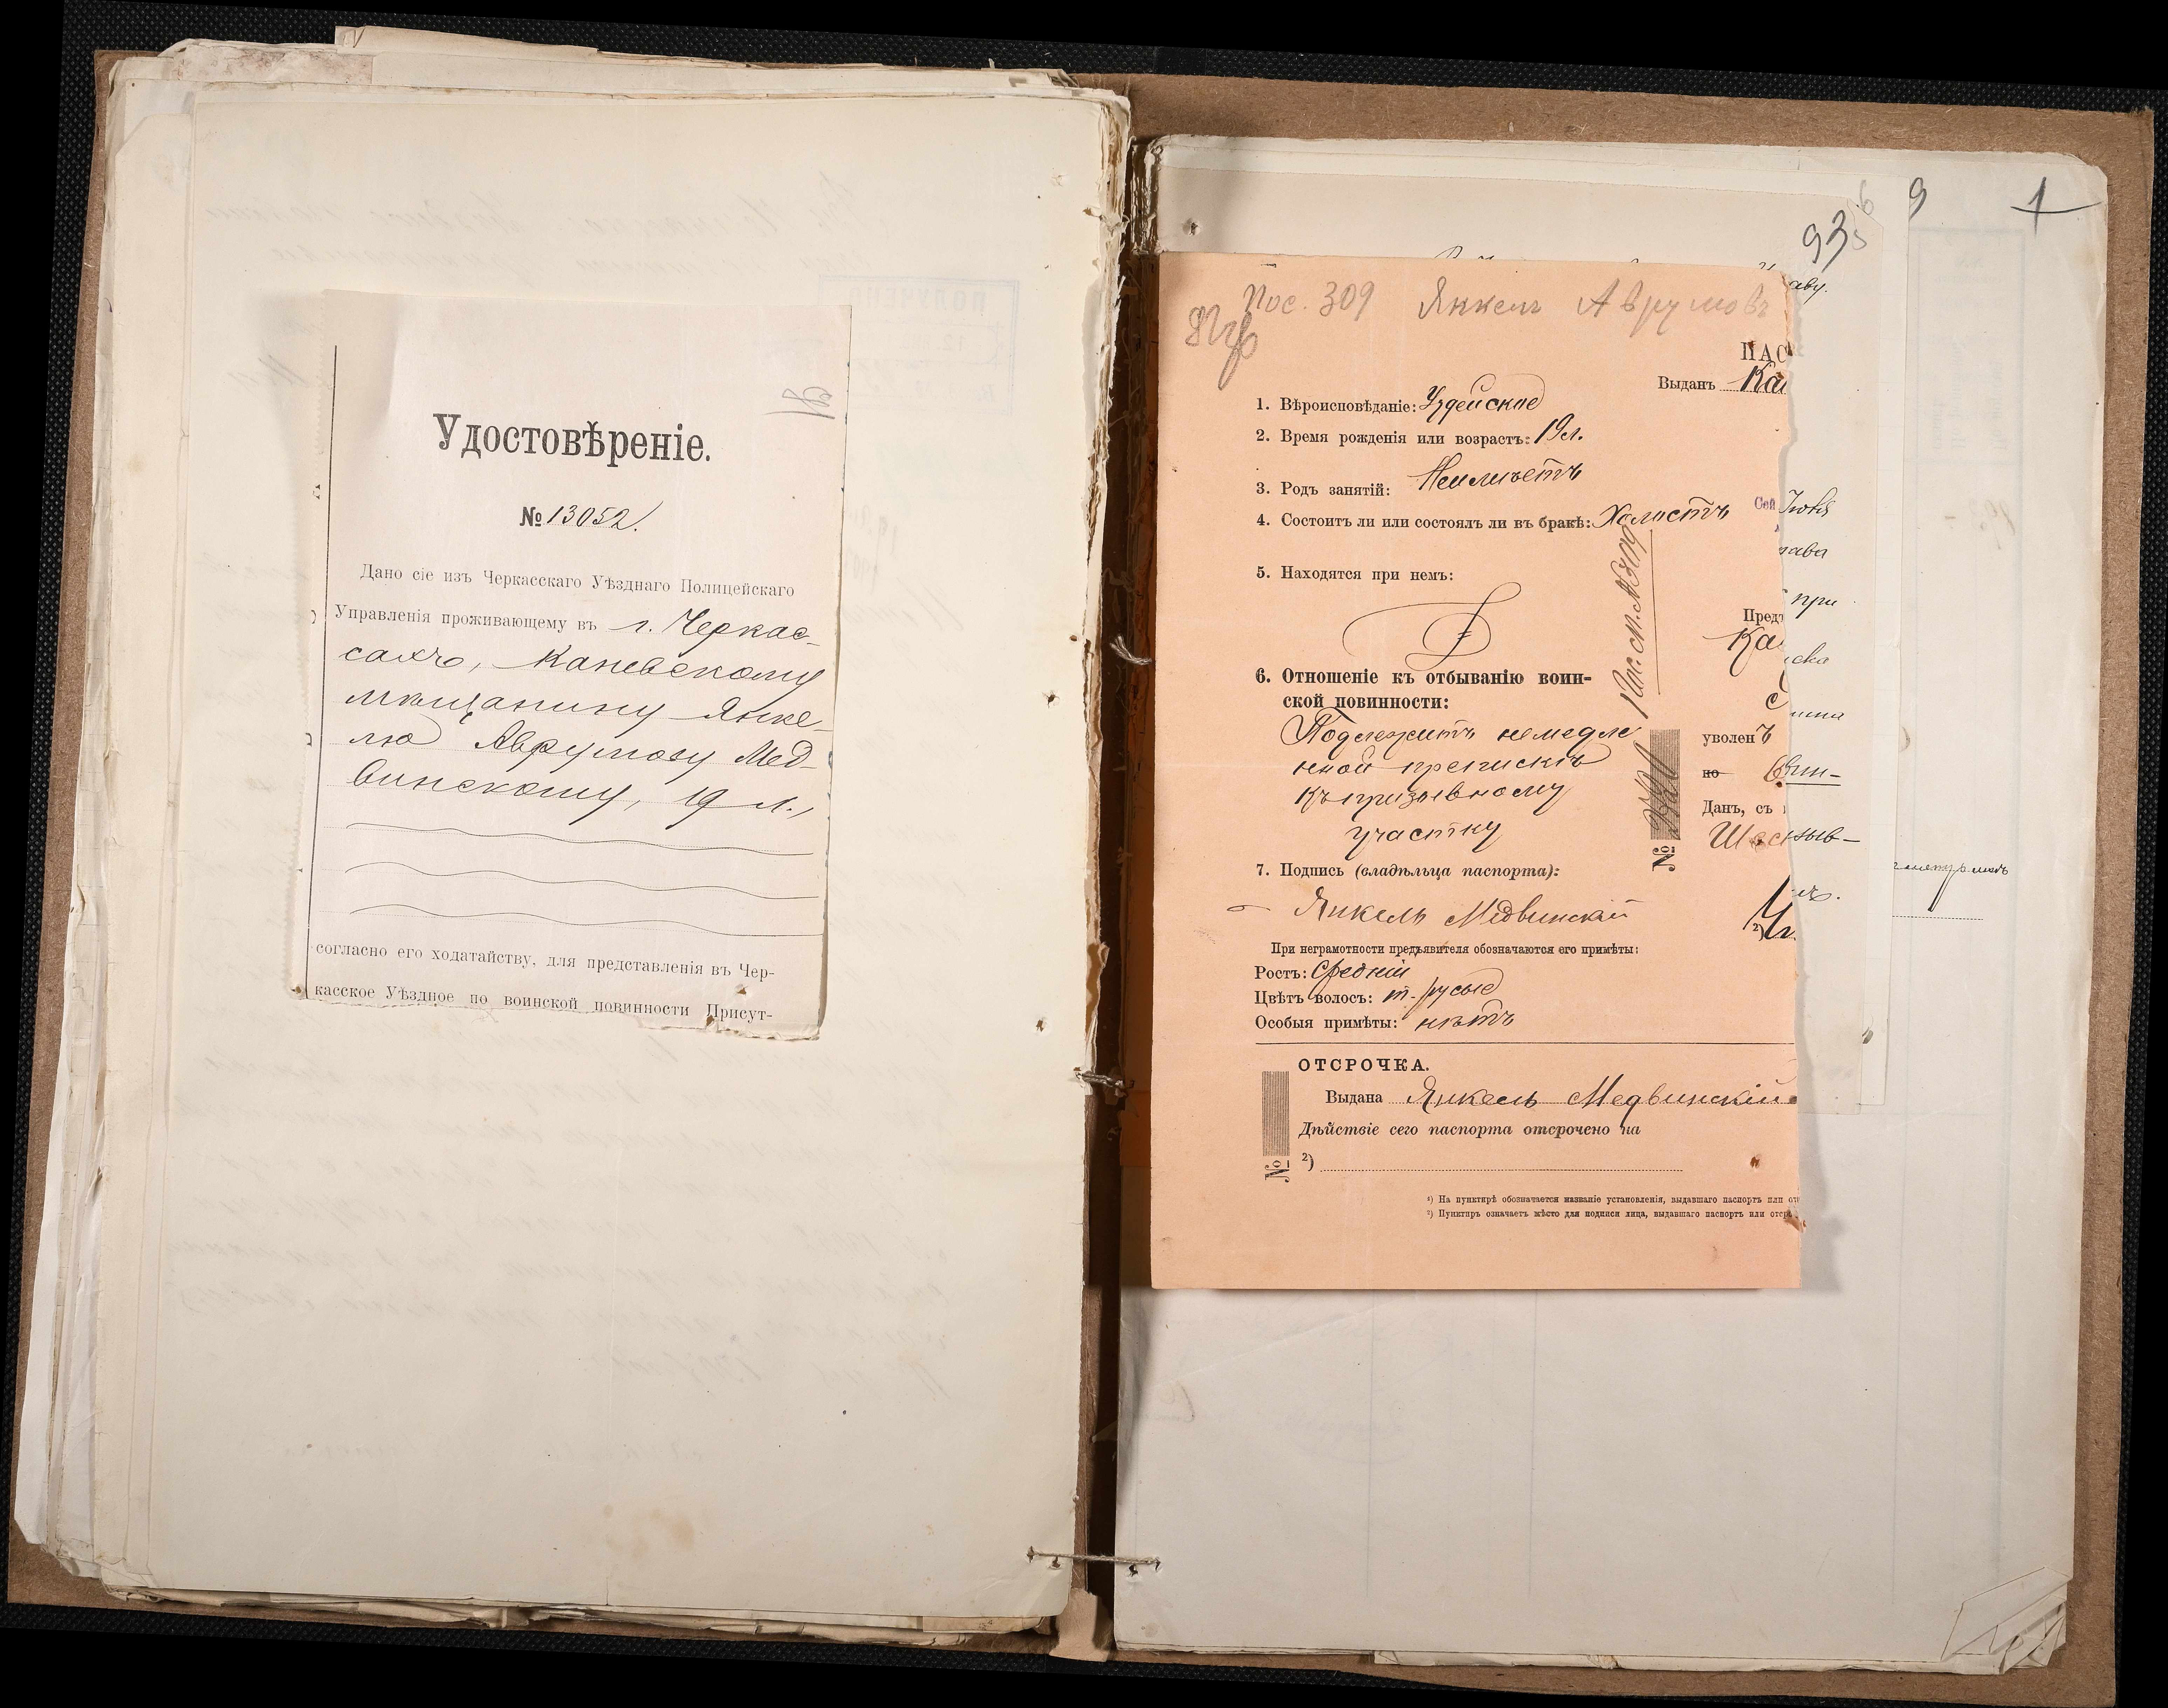 Удостовѣреніе.
№ 13052.
Дано сіе изъ Черкасскаго Уѣзднаго Полицейскаго
Управленія проживающему въ г. Черкас-
сахъ, Каневскому
мѣщанину Янке-
лю Аврумову Мед-
винскому, 19 л.,
согласно его ходатайству, для представленія въ Чер-
касское Уѣздное по воинской повинности Присут-
9
1
93
Пос. 309 Янкель Аврумовъ
ПАС
Выданъ Ка
1. Вѣроисповѣданіе: Іудейское
2. Время рожденія или возрастъ: 19 л.
3. Родъ занятій: Неимѣетъ
4. Состоитъ ли или состоялъ ли въ бракѣ: Холостъ
5. Находятся при немъ:
Пред
Ка
6. Отношеніе къ отбыванію воин-
ской повинности:
Подлежитъ немедле
нной припискѣ
къ призывному
участку
уволенъ
по
Данъ, съ
№
7. Подпись (владѣльца паспорта):
Янкель Медвинскій
При неграмотности предъявителя обозначаются его примѣты:
Ростъ: Средній
Цвѣтъ волосъ: т.-русые
Особыя примѣты: нѣтъ
ОТСРОЧКА.
Выдана Янкель Медвинскій
Дѣйствіе сего паспорта отсрочено на
№
2)
1) На пунктирѣ обозначается названіе установленія, выдавшаго паспортъ или от
2) Пунктиръ означаетъ мѣсто для подписи лица, выдавшаго паспортъ или отсро